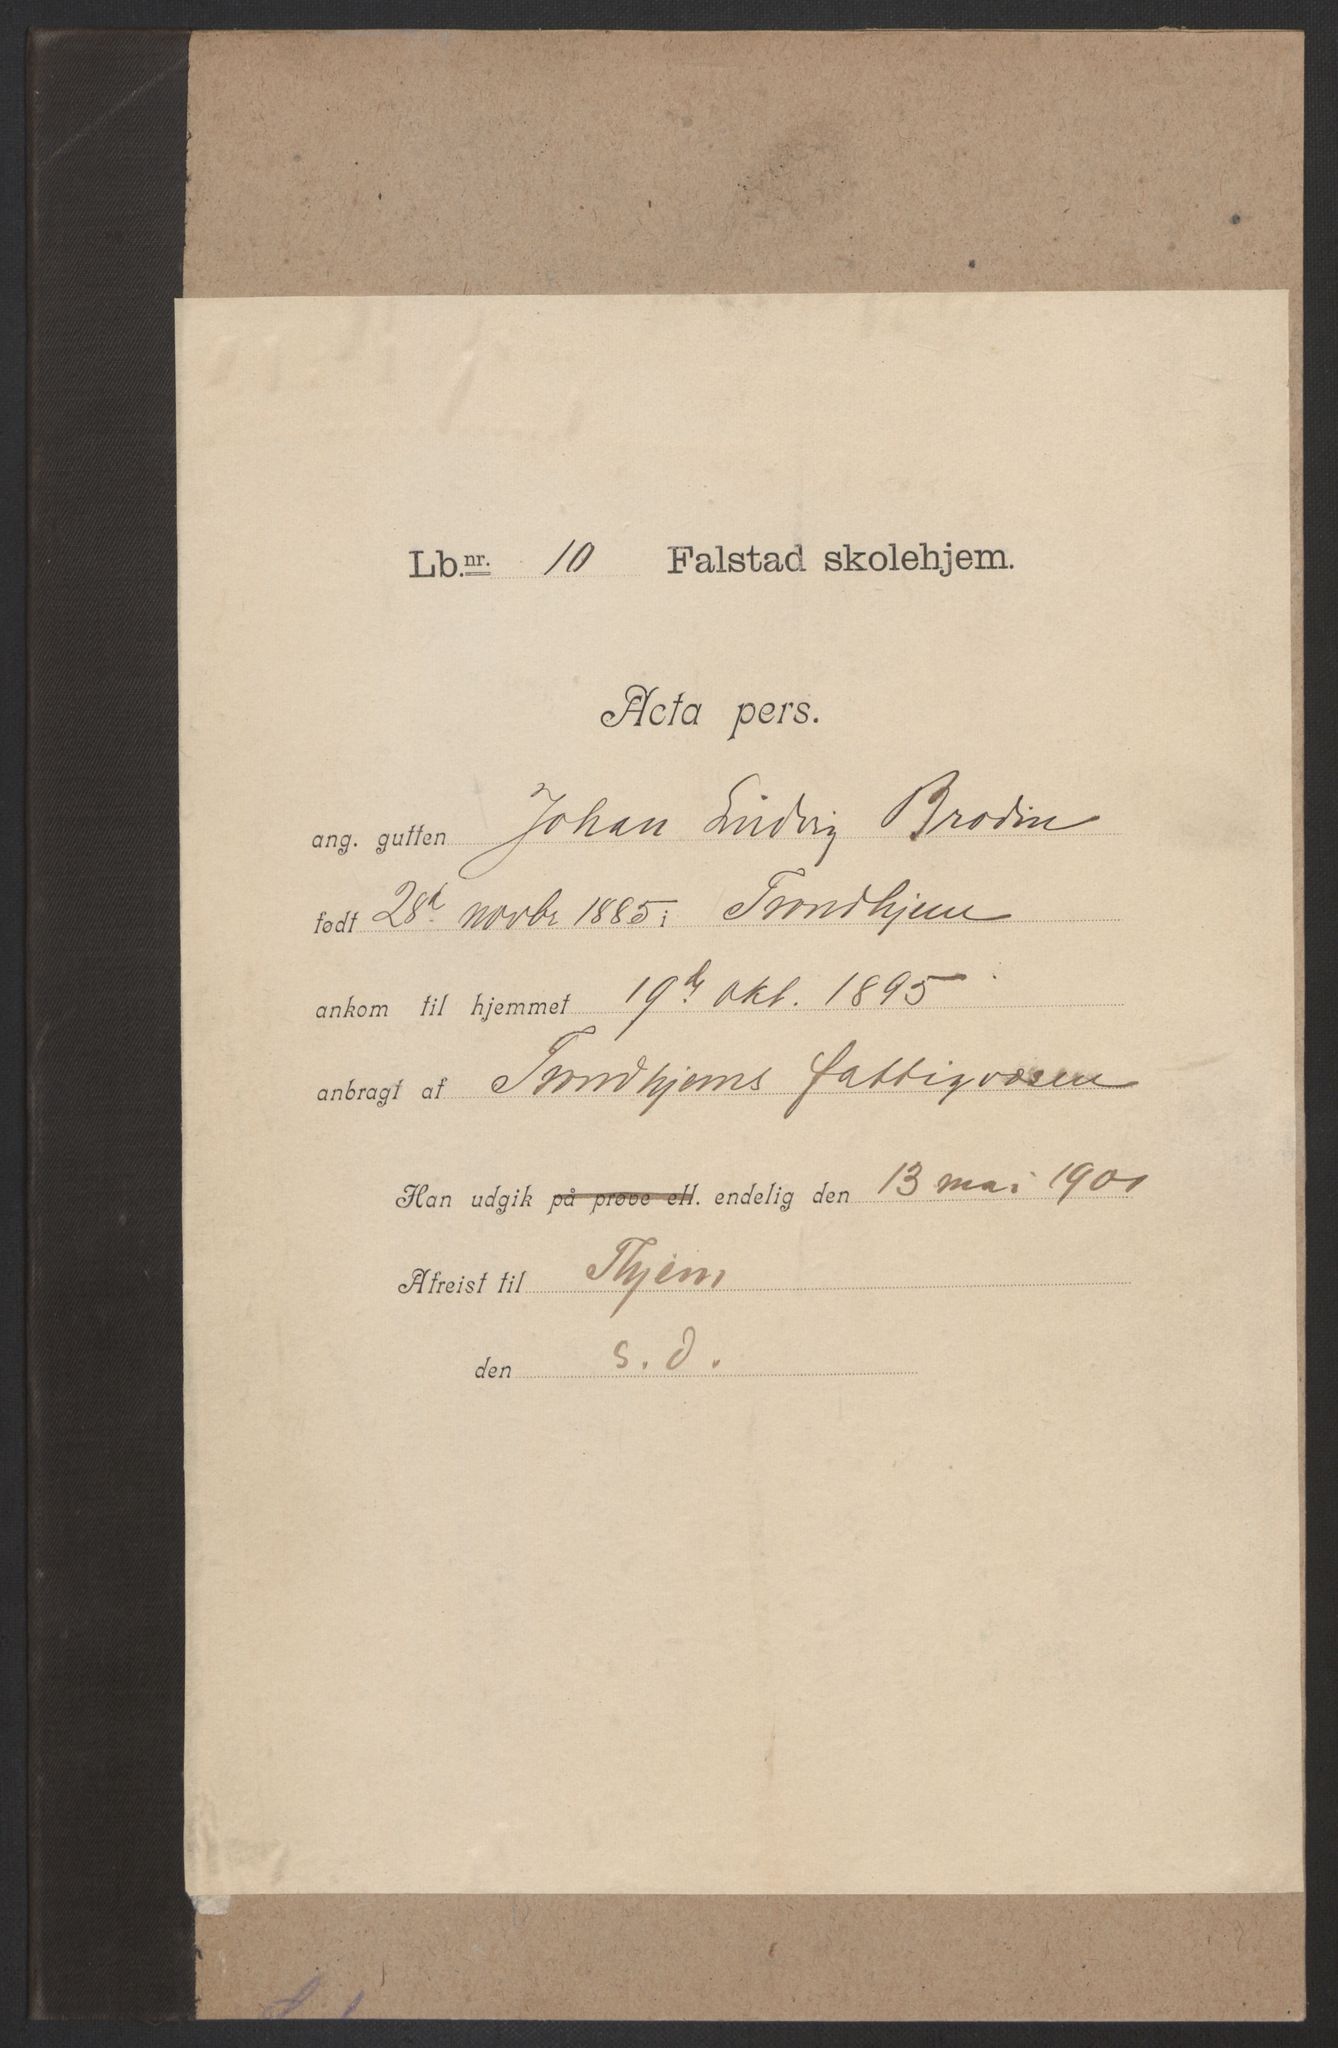 Lb.nr. 10 Falstad skolehjem.
Acta pers.
ang. gutten Johan Ludvig Brodin
født 28d novbr 1885 i Trondhjem
ankom til hjemmet 19de okt. 1895
anbragt af Trondhjems fattigvæsen
Han udgik på prøve ell. endelig den 13 mai 1901
Afreist til Thjem
den s. d.